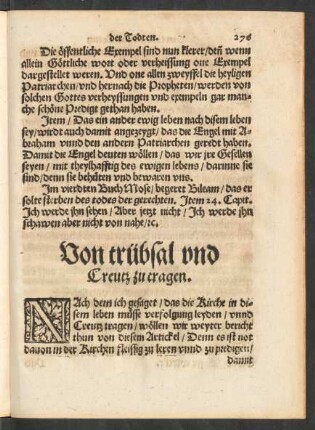 der Todten. 276
Die öffentliche Exempel sind nun klerer / deñ wenn
allein Göttliche wort oder verheissung one Exempel
dargestellet weren. Vnd one allen zweyffel die heyligen
Patriarchen / vnd hernach die Propheten / werden von
solchen Gottes verheyssungen vnd exempeln gar man-
che schöne Predigt gethan haben.
Item / Das ein ander ewig leben nach disem leben
sey / wirdt auch damit angezeygt / das die Engel mit A-
braham vnnd den andern Patriarchen geredt haben.
Damit die Engel deuten wöllen / das wir jre Gesellen
seyen / mit theylhafftig des ewigen lebens / darinne sie
sind / denn sie behüten vnd bewaren vns.
Im vierdten Buch Mose / begeret Bileam / das er
solte sterben des todes der gerechten. Item 24. Capit.
Ich werde jhn sehen / Aber jetzt nicht / Ich werde jhn
schawen aber nicht von nahe / ꝛc.
Von trübsal vnd
Creutz zu tragen.
NAch dem ich gesaget / das die Kirche in di-
sem leben müsse verfolgung leyden / vnnd
Creutz tragen / wöllen wir weyter bericht
thun von disem Artickel / Denn es ist not
dauon in der Kirchen fleissig zu leren vnnd zu predigen /
damit